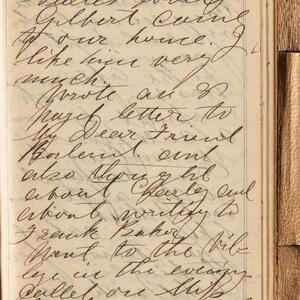 Gilbert came
to our home. I
like him very
much.
Wrote an 8
page letter to
my Dear Friend
and
also thought
about Charley and
about writing to
Frank Baker
Went to the vil-
lage in the evening
called on Miss